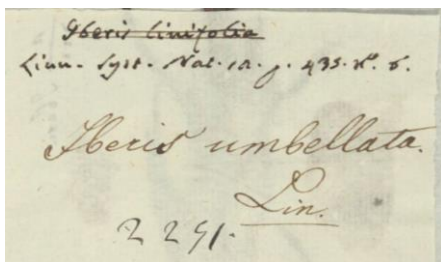 Iberis linifolia
Linn. Syst. Nat. 12. p. 435. n. 6.
Iberis umbellata.
Lin.
2291.